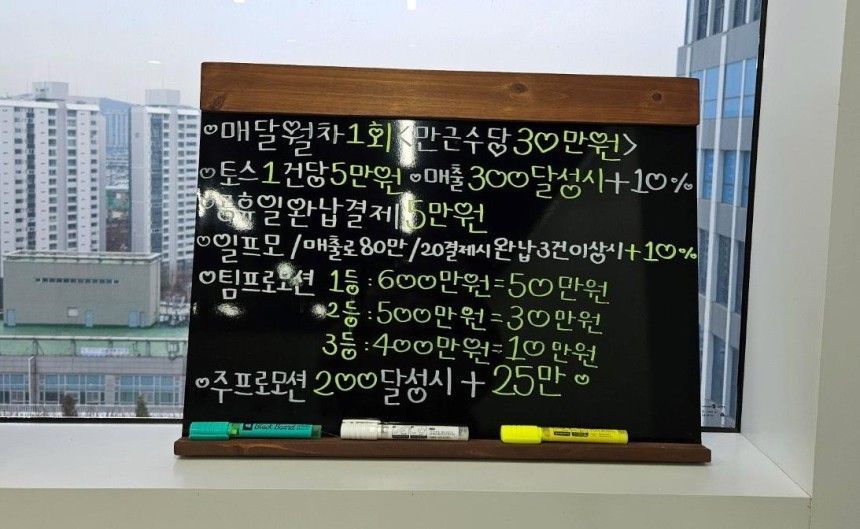 ♡매달월차1회<만근수당30만원>
♡토스1건당5만원 ♡매출300달성시+10%
휴일완납결제 5만원
♡일프모/매출로80만/20결제시완납3건이상시+10%
♡팀프로모션 1등:600만원=50만원
2등:500만원=30만원
3등:400만원=10만원
♡주프로모션200달성시+25만♡
Black Board